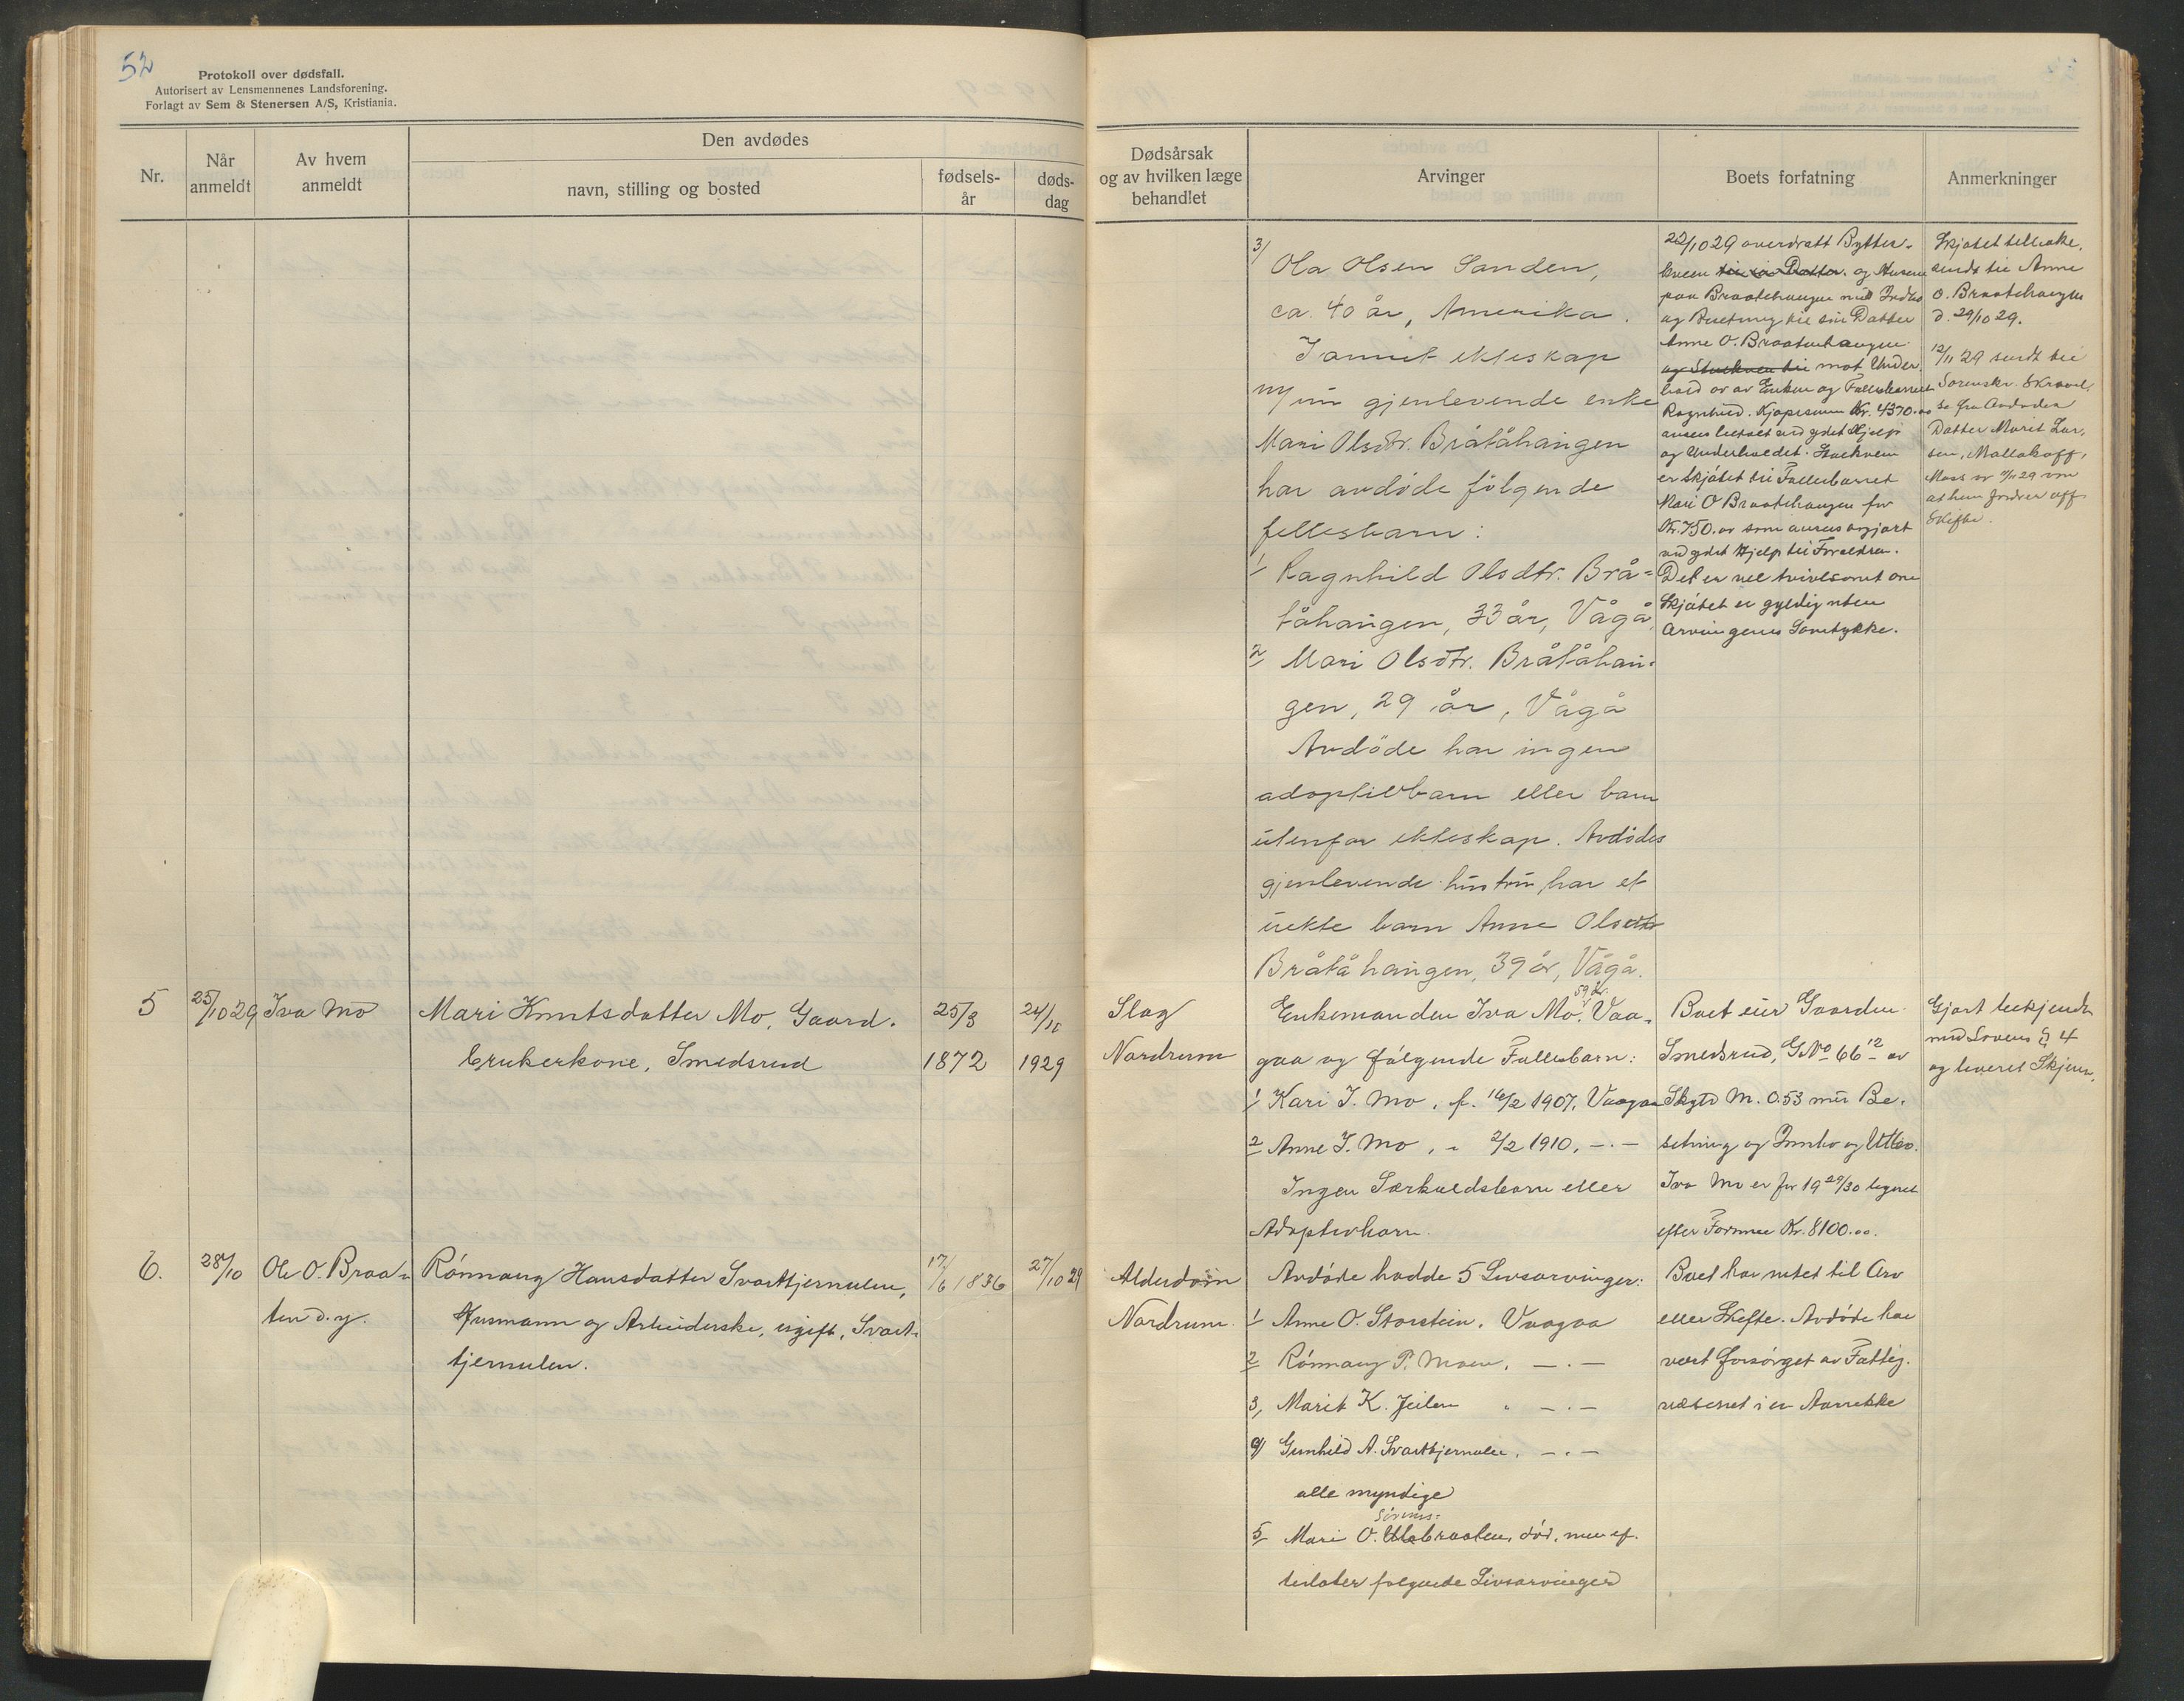 52
Protokoll over dødsfall.
Autorisert av Lensmennenes Landsforening.
Forlagt av Sem & Stenersen A/S, Kristiania.
Nr.
Når anmeldt
Av hvem anmeldt
Den avdødes
navn, stilling og bosted
fødsels-
år
døds-
dag
Dødsårsak
og av hvilken læge
behandlet
Arvinger
Boets forfatning
Anmerkninger
3/ Ola Olsen Sanden,
ca. 40 år, Amerika.
I annet ekteskap
gjenlevende enke
Mari Olsdtr. Bråtåhaugen
har avdøde følgende
fellesbarn:
1/ Ragnhild Olsdtr. Brå=
tåhaugen, 33 år, Vågå,
2/ Mari Olsdtr. Bråtåhau=
gen, 29 år, Vågå
Avdøde har ingen
adoptivbarn eller barn
utenfor ekteskap. Avdødes
gjenlevende hustru har et
uekte barn Anne Olsdtr
Bråtåhaugen, 39 år, Vågå.
22/10 29 overdratt Bytter-
kveen til sin Datter og Husene
paa Braatehaugen med Indbo
og Buskap til sin Datter
Anne O. Braatenhaugen
mot Under-
hold av Enken og Fellesbarnet
Ragnhild. Kjøpesum Kr. 4370.00
ansees betalt ved ydet Hjelp
og Underholdet.
er skjøtet til Fellesbarnet
Mari O Braatehaugen for
Kr. 750.00 som ansees opgjort
ved ydet Hjelp til Foreldrene.
Det er vel tvivlsomt om
Skjøtet er gyldig uten
Arvingenes Samtykke.
Skjøtet tilbake-
sendt til Anne
O. Braatehaugen
d. 29/10 29.
12/11 29 sendt til
Sorenskr. Skrivel-
se fra Avdødes
Datter Marit Lar-
sen, Mattakoff,
Mass av 11/11 29 om
at hun fordrer off.
Skifte.
5 25/10 29 Iva Mo Mari Knutsdatter Mo, Gaard- 25/3 24/10 Slag Enkemanden Iva Mo, 59 år. Vaa- Boet eier Gaarden Gjort bekjendt
brukerkone, Smedsrud 1872 1929 Nordrum gaa og følgende Fellesbarn: Smedsrud, G.No 66 12 av med Lovens § 4
1/ Kari I. Mo, f. 16/2 1907, Vaagaa Skyld M. 0.53 med Be- og leveret Skjema.
2/ Anne I. Mo, " 2/2 1910, -.- setning og Innbo og Utbo.
Ingen Særkuldsbarn eller Iva Mo er for 1929/30 lignet
Adoptivbarn. efter Formue Kr. 8100.00.
6. 28/10 Ole O. Braa- Rønnaug Hansdatter Svarttjernulen, 17/6 1836 27/10 29 Alderdom Avdøde hadde 5 Livsarvinger: Boet har intet til Arv
ten d.y. Husmann og Arbeiderske, ugift, Svart- Nordrum. 1/ Anne O. Storstein, Vaagaa eller Skifte. Avdøde har
tjernulen. 2/ Rønnaug P. Moen, -.- vært forsørget av Fattig-
3/ Marit K. " -.- vesenet i en Aarrekke
4/ Gunhild A. Svarttjernulen, -.-
alle myndige
5/ Mari O. død, men ef-
terlater følgende Livsarvinger